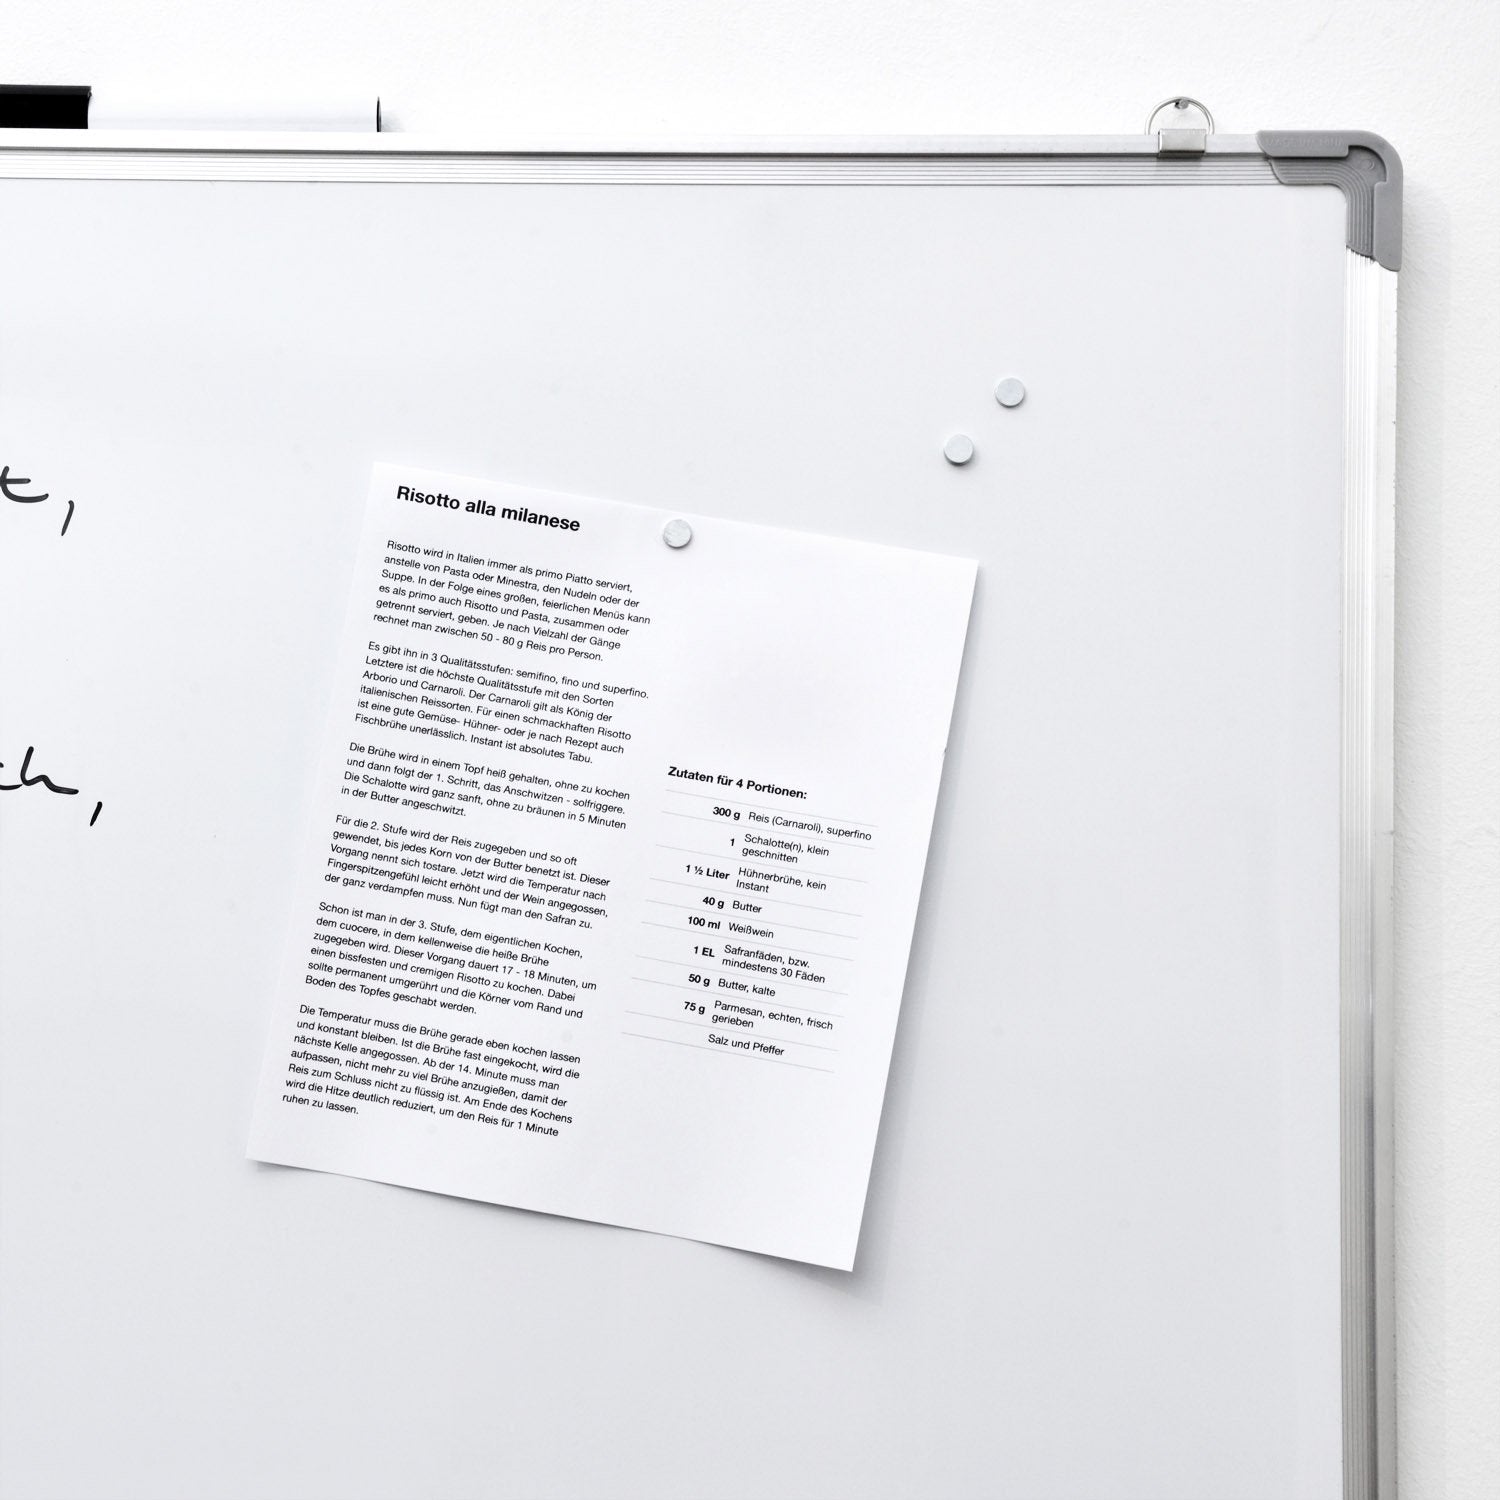 t,
ch,
Risotto alla milanese
Risotto wird in Italien immer als primo Piatto serviert,
anstelle von Pasta oder Minestra, den Nudeln oder der
Suppe. In der Folge eines großen, feierlichen Menüs kann
es als primo auch Risotto und Pasta, zusammen oder
getrennt serviert, geben. Je nach Vielzahl der Gänge
rechnet man zwischen 50 - 80 g Reis pro Person.
Es gibt ihn in 3 Qualitätsstufen: semifino, fino und superfino.
Letztere ist die höchste Qualitätsstufe mit den Sorten
Arborio und Carnaroli. Der Carnaroli gilt als König der
italienischen Reissorten. Für einen schmackhaften Risotto
ist eine gute Gemüse- Hühner- oder je nach Rezept auch
Fischbrühe unerlässlich. Instant ist absolutes Tabu.
Die Brühe wird in einem Topf heiß gehalten, ohne zu kochen
und dann folgt der 1. Schritt, das Anschwitzen - solfriggere.
Die Schalotte wird ganz sanft, ohne zu bräunen in 5 Minuten
in der Butter angeschwitzt.
Für die 2. Stufe wird der Reis zugegeben und so oft
gewendet, bis jedes Korn von der Butter benetzt ist. Dieser
Vorgang nennt sich tostare. Jetzt wird die Temperatur nach
Fingerspitzengefühl leicht erhöht und der Wein angegossen,
der ganz verdampfen muss. Nun fügt man den Safran zu.
Schon ist man in der 3. Stufe, dem eigentlichen Kochen,
dem cuocere, in dem kellenweise die heiße Brühe
zugegeben wird. Dieser Vorgang dauert 17 - 18 Minuten, um
einen bissfesten und cremigen Risotto zu kochen. Dabei
sollte permanent umgerührt und die Körner vom Rand und
Boden des Topfes geschabt werden.
Die Temperatur muss die Brühe gerade eben kochen lassen
und konstant bleiben. Ist die Brühe fast eingekocht, wird die
nächste Kelle angegossen. Ab der 14. Minute muss man
aufpassen, nicht mehr zu viel Brühe anzugießen, damit der
Reis zum Schluss nicht zu flüssig ist. Am Ende des Kochens
wird die Hitze deutlich reduziert, um den Reis für 1 Minute
ruhen zu lassen.
Zutaten für 4 Portionen:
300 g Reis (Carnaroli), superfino
1 Schalotte(n), klein
geschnitten
1 ½ Liter Hühnerbrühe, kein
Instant
40 g Butter
100 ml Weißwein
1 EL Safranfäden, bzw.
mindestens 30 Fäden
50 g Butter, kalte
75 g Parmesan, echten, frisch
gerieben
Salz und Pfeffer